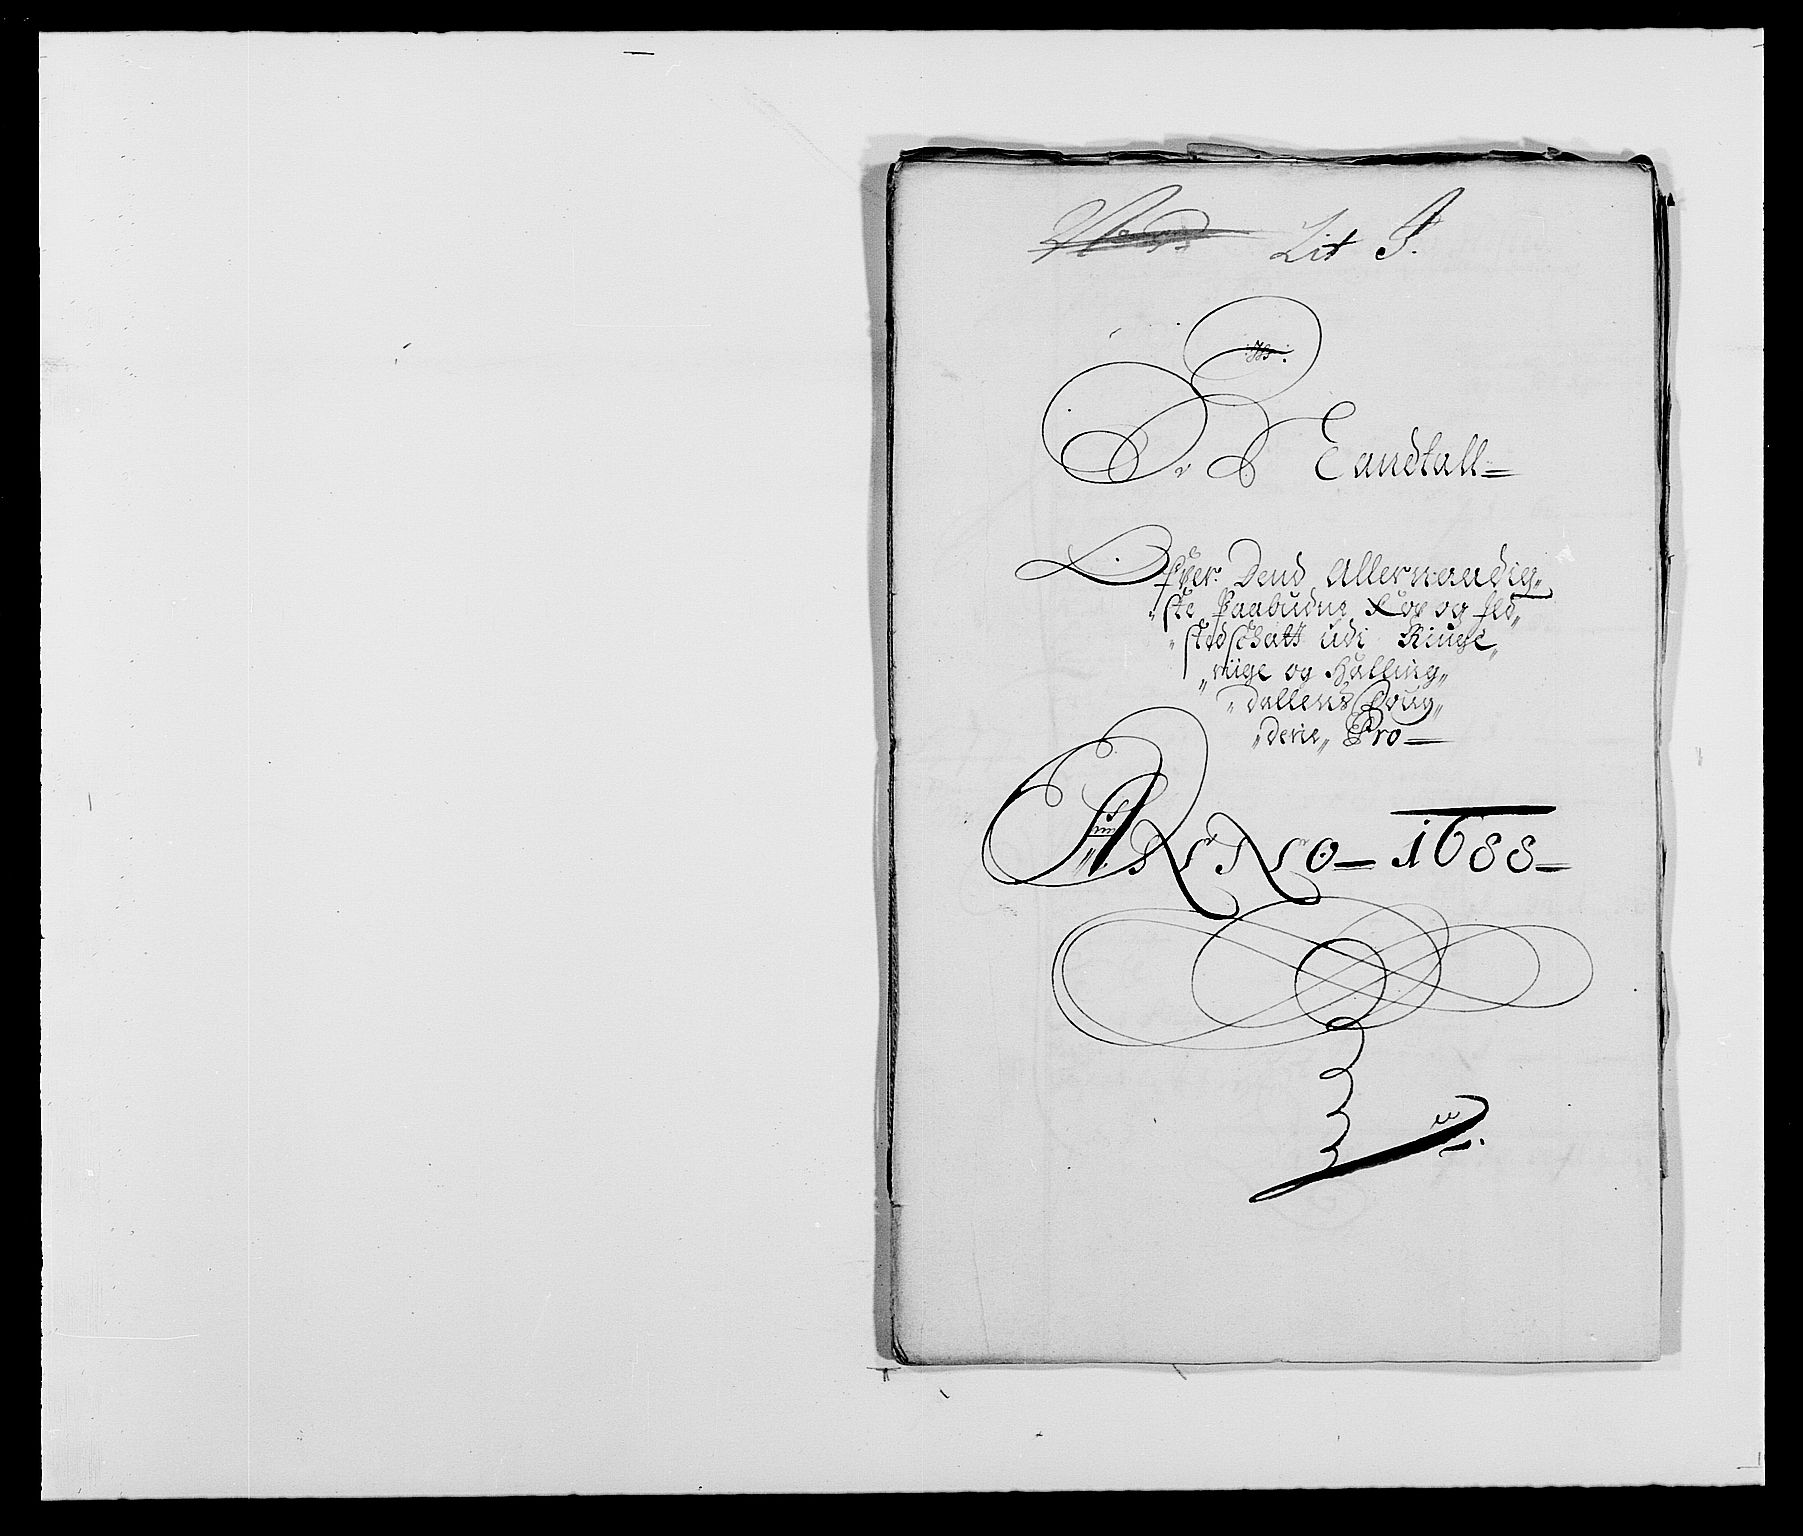 Lit J.
Eandtall
Ofver Dend Allernaadig„
„ste Paabudne Kop og Ild„
„stedschatt udi Ringe„
„riige og Halling„
„dallens Foug„
„derie„ Pro
ANNO 1688